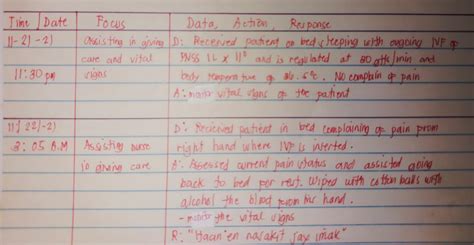 Time | Date Focus Data, Action, Response
11-21-21 Assisting in giving D: Received patient on bed sleeping with ongoing IVF of
care and vital PNSS 1L x 11° and is regulated at 30 gtts/min and
11:30 pm signs body temperature of 36.5°C. No complain of pain
A: monitor vital signs of the patient
11/22/21 D: Recieved patient in bed complaining of pain from
3:05 A.M Assisting nurse right hand where IVF is inserted.
in giving care A: Assessed current pain status and assisted going
back to bed for rest. Wiped with cotton balls with
alcohol the blood from his hand.
- monitor the vital signs
R: "Haan'en nasakit jay imak"